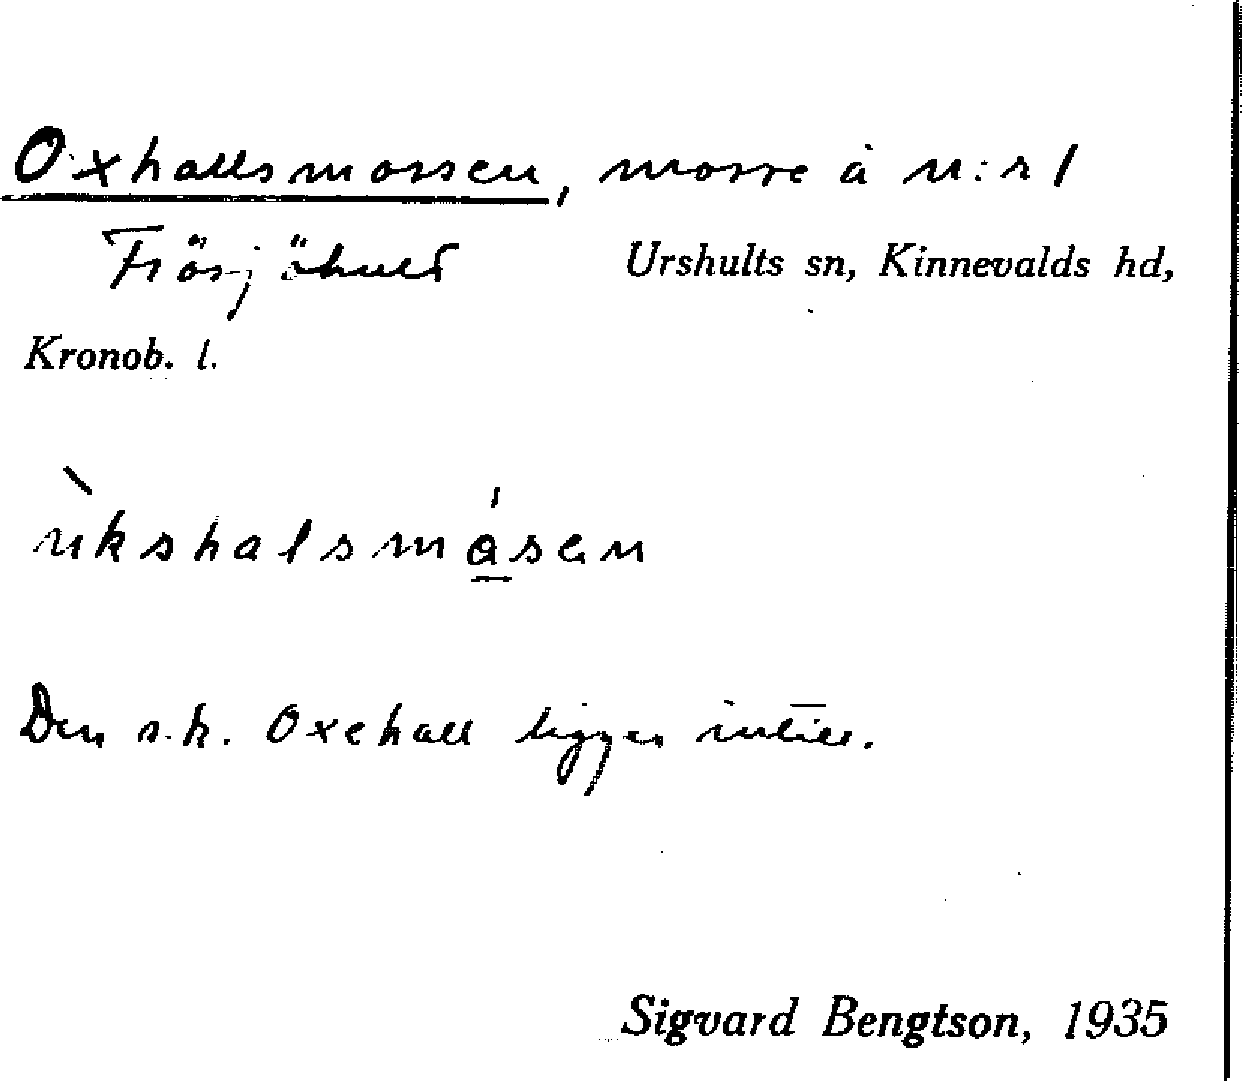 Oxhallsmossen, mosse å n:r 1
Frösjöhult Urshults sn, Kinnevalds hd,
Kronob. l.
ùkshalsmåsen
Den s.k. Oxehall ligger intill.
Sigvard Bengtson, 1935